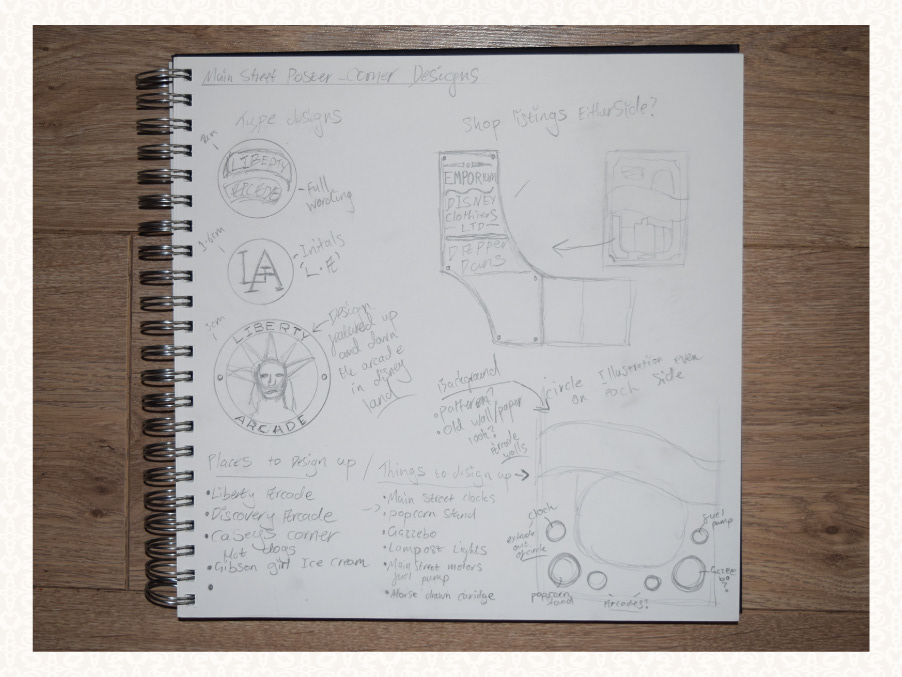 Main Street Poster - Corner Designs
Type designs
2cm
LIBERTY
ARCADE
Full
wording
1.6cm
LA
Initials
'L.A'
3cm
LIBERTY
ARCADE
Design
featured up
and down
the arcade
in disney
land
Shop listings Either Side?
EMPORIUM
DISNEY
Clothiers
LTD
Dapper
Dans
Background
• Pattern?
• Old wall/paper
look?
Arcade
walls
circle Illustration even
on each side
Places to Design up /
• Liberty Arcade
• Discovery Arcade
• Caseys corner
Hot dogs
• Gibson girl Ice cream
Things to design up →
• Main Street clocks
• popcorn Stand
• Gazzebo
• Lampost Lights
• Main Street meters
fuel pump
• Horse drawn caridge
clock
outside
arcade
popcorn
stand
Arcades?
fuel
pump
Gazze
bo?